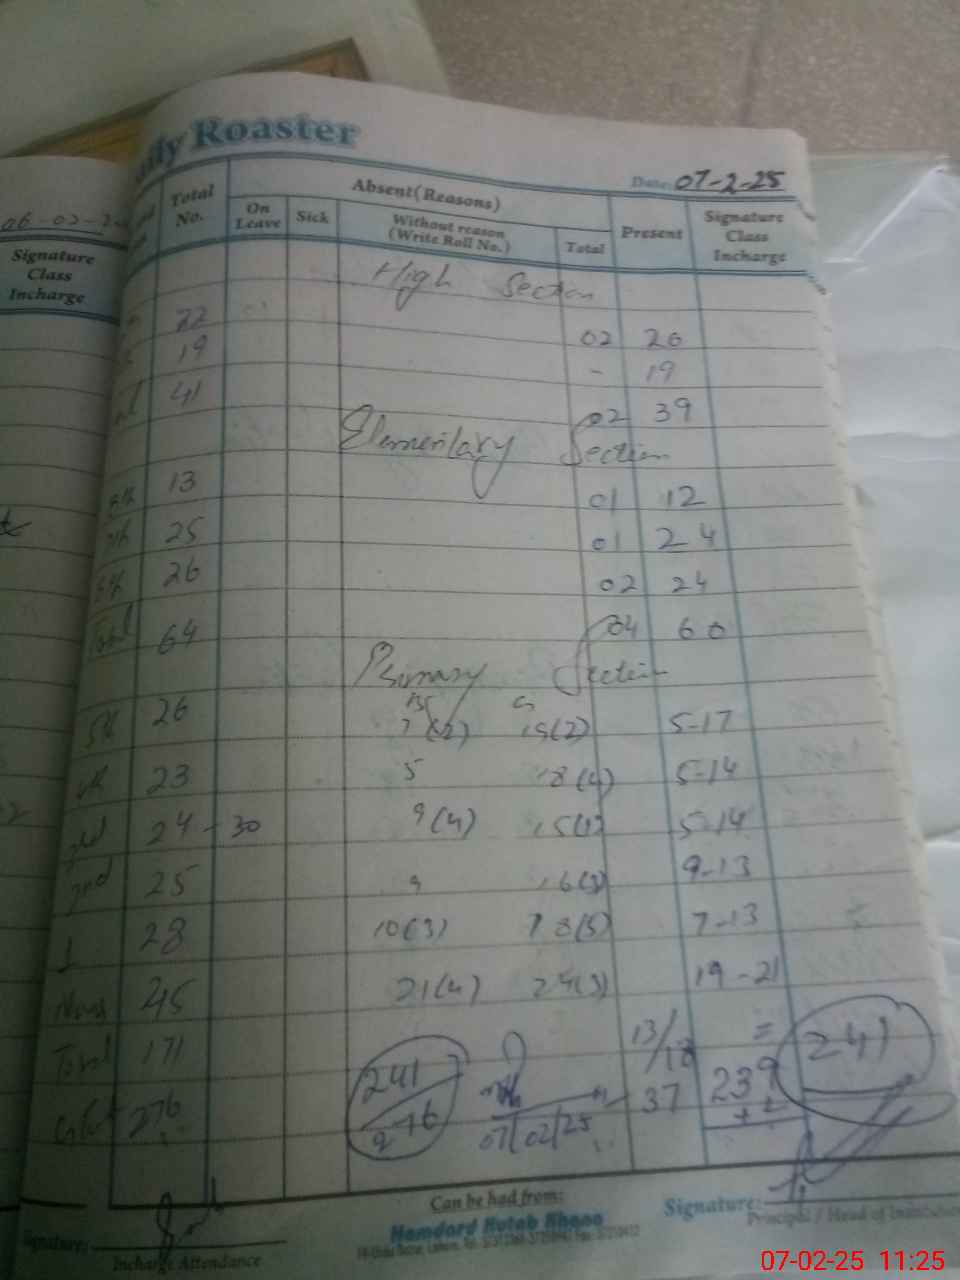 Daily Roaster
Date: 07-2-25
06-02-2
Total No. Absent (Reasons) Present Signature Class Incharge
On Leave Sick Without reason (Write Roll No.) Total
Signature Class Incharge
High Section
22 02 20
19 - 19
41 02 39
Elementary Section
8th 13 01 12
7th 25 01 24
6th 26 02 24
Total 64 04 60
Primary Section
5th 26 (2) 15(2) 5-17
23 5 18(4) 5-14
3rd 24-30 9(4) 15(1) 5-14
2nd 25 9 16(3) 9-13
1 28 10(3) 18(5) 7-13
45 21(4) 24(3) 19-21
Total 171 13/18 = 241
276 241 276 37 239
+2
07/02/25
Can be had from:
Hamdard Kutab Khana
Signature: Incharge Attendance
Signature: Principal / Head of Institution
07-02-25 11:25